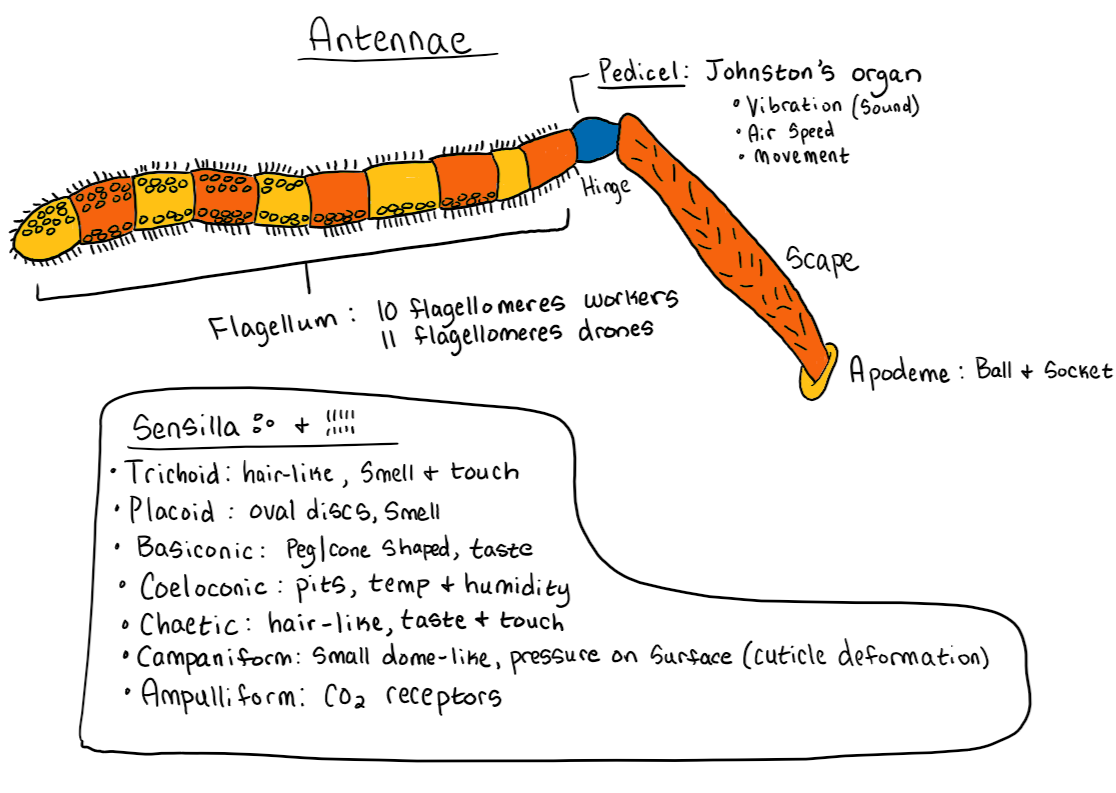 Antennae
Pedicel: Johnston's organ
• Vibration (Sound)
• Air Speed
• Movement
Hinge
Scape
Flagellum: 10 flagellomeres workers
11 flagellomeres drones
Apodeme: Ball + Socket
Sensilla +
• Trichoid: hair-like, Smell + touch
• Placoid: oval discs, Smell
• Basiconic: Peg/cone shaped, taste
• Coeloconic: pits, temp + humidity
• Chaetic: hair-like, taste + touch
• Campaniform: Small dome-like, pressure on Surface (cuticle deformation)
• Ampulliform: CO₂ receptors